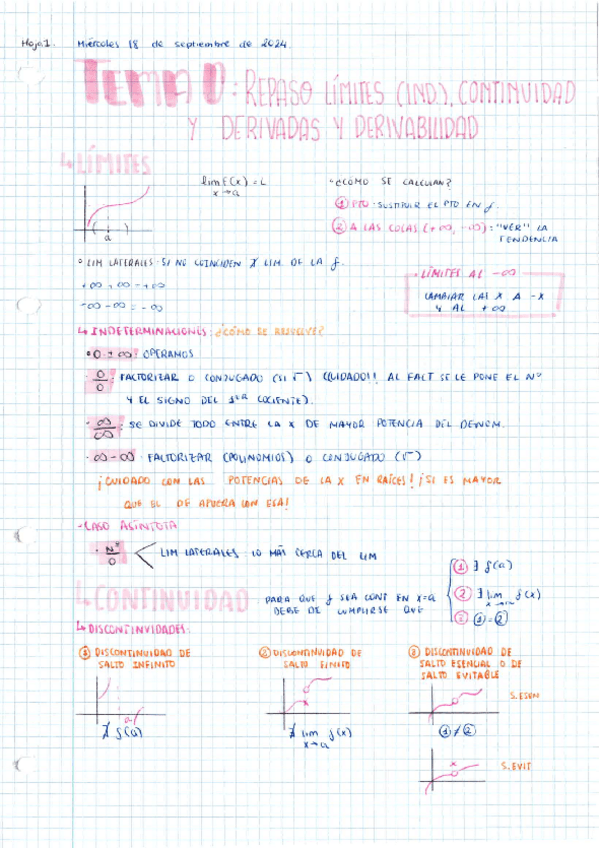 Hoja 1. Miércoles 18 de septiembre de 2024.
TEMA 0: REPASO LÍMITES (IND), CONTINUIDAD
Y DERIVADAS Y DERIVABILIDAD
↳ LÍMITES
lim f(x) = L
x→a
a
¿CÓMO SE CALCULAN?
① PTO: SUSTITUIR EL PTO EN f.
② A LAS COLAS (+∞, -∞): "VER" LA
TENDENCIA
• LIM LATERALES: SI NO COINCIDEN ∄ LIM. DE LA f.
+∞ + ∞ = +∞
-∞ - ∞ = -∞
• LÍMITES AL -∞
CAMBIAR LAS X A -X
Y AL +∞
↳ INDETERMINACIONES: ¿CÓMO SE RESUELVE?
• 0 · ±∞: OPERAMOS
· 0/0: FACTORIZAR O CONJUGADO (SI √) (CUIDADO!! AL FACT SE LE PONE EL Nº
Y EL SIGNO DEL 1ER COCIENTE).
· ∞/∞: SE DIVIDE TODO ENTRE LA X DE MAYOR POTENCIA DEL DENOM.
· ∞-∞: FACTORIZAR (POLINOMIOS) O CONJUGADO (√)
¡CUIDADO CON LAS POTENCIAS DE LA X EN RAÍCES! ¡SI ES MAYOR
QUE EL DE AFUERA CON ESA!
· CASO ASÍNTOTA
· Nº/0 LIM LATERALES LO MÁS CERCA DEL LIM
↳ CONTINUIDAD PARA QUE f SEA CONT EN X=a
DEBE DE CUMPLIRSE QUE
① ∃ f(a)
② ∃ lim f(x)
③ ① = ②
↳ DISCONTINUIDADES:
① DISCONTINUIDAD DE
SALTO INFINITO
a
∄ f(a)
② DISCONTINUIDAD DE
SALTO FINITO
∄ lim f(x)
x→a
③ DISCONTINUIDAD DE
SALTO ESENCIAL O DE
SALTO EVITABLE
S. ESEN
① ≠ ②
S. EVIT